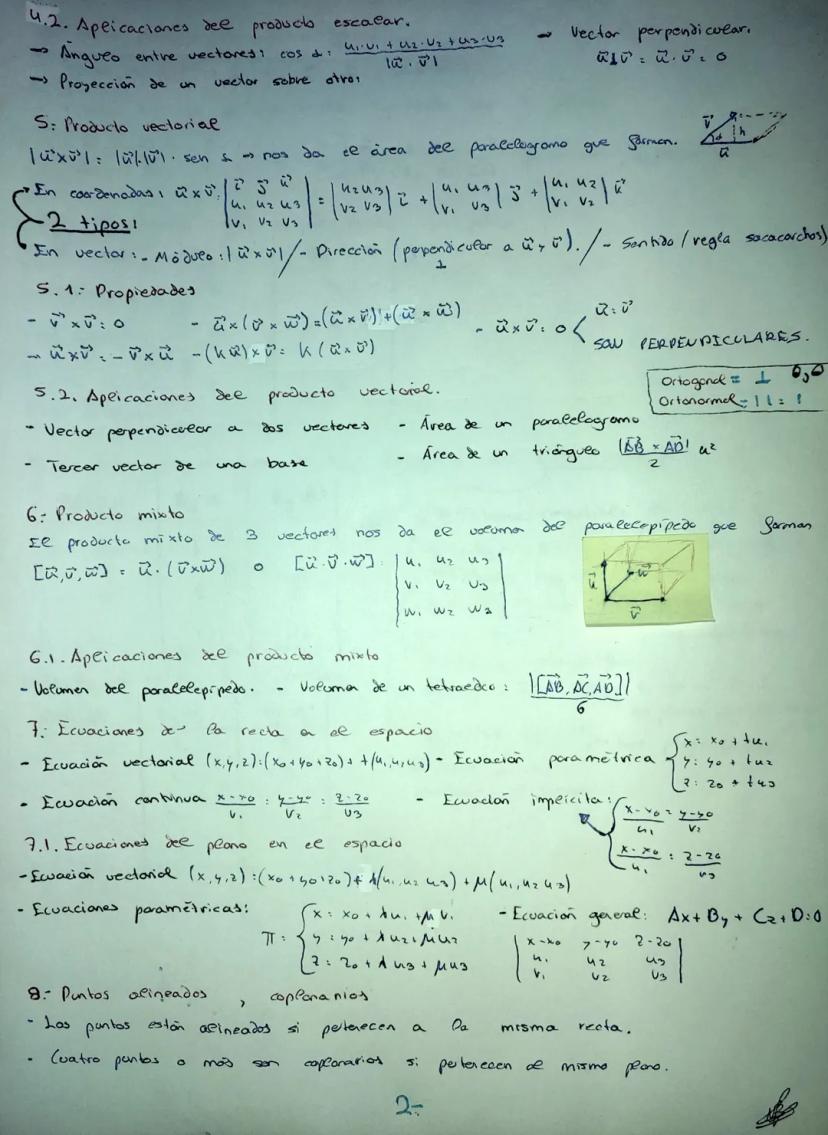 4.2. Aplicaciones del producto escalar.
→ Ángulo entre vectores: cos α: u₁·v₁ + u₂·v₂ + u₃·v₃ / |u⃗·v⃗|
→ Vector perpendicular.
u⃗⊥v⃗ = u⃗·v⃗ = 0
→ Proyección de un vector sobre otro:
5: Producto vectorial
|u⃗×v⃗| = |u⃗|·|v⃗|· sen α → nos da el área del paralelogramo que forman.
v⃗ α h u⃗
En coordenadas: u⃗×v⃗: |i⃗ j⃗ k⃗ / u₁ u₂ u₃ / v₁ v₂ v₃| = |u₂ u₃ / v₂ v₃| i⃗ + |u₁ u₃ / v₁ v₃| j⃗ + |u₁ u₂ / v₁ v₂| k⃗
2 tipos:
En vector: - Módulo: |u⃗×v⃗| / - Dirección (perpendicular a u⃗ y v⃗). / - Sentido (regla sacacorchos)
⊥
5.1: Propiedades
- v⃗×v⃗ = 0 - u⃗×(v⃗×w⃗) = (u⃗×v⃗) + (u⃗×w⃗) - u⃗×v⃗ = 0 < u⃗ = v⃗
SON PERPENDICULARES.
→ u⃗×v⃗ = - v⃗×u⃗ - (k u⃗)×v⃗ = k (u⃗×v⃗)
5.2. Aplicaciones del producto vectorial.
Ortogonal = ⊥
Ortonormal = | | = 1
- Vector perpendicular a dos vectores - Área de un paralelogramo
- Tercer vector de una base - Área de un triángulo |AB⃗ × AD⃗| / 2 u²
6: Producto mixto
El producto mixto de 3 vectores nos da el volumen del paralelepípedo que forman
[u⃗,v⃗,w⃗] = u⃗·(v⃗×w⃗) o [u⃗·v⃗·w⃗]: |u₁ u₂ u₃ / v₁ v₂ v₃ / w₁ w₂ w₃|
u⃗ w⃗ v⃗
6.1. Aplicaciones del producto mixto
- Volumen del paralelepípedo. - Volumen de un tetraedro: |[AB⃗, AC⃗, AD⃗]| / 6
7: Ecuaciones de la recta a el espacio
- Ecuación vectorial (x,y,z):(x₀+y₀+z₀)+t(u₁,u₂,u₃) - Ecuación paramétrica { x: x₀ + tu₁ / y: y₀ + tu₂ / z: z₀ + tu₃
- Ecuación continua x-x₀/v₁ : y-y₀/v₂ : z-z₀/v₃ - Ecuación implícita: { x-x₀/u₁ = y-y₀/v₂ / x-x₀/u₁ : z-z₀/v₃
7.1. Ecuaciones del plano en el espacio
- Ecuación vectorial (x,y,z):(x₀+y₀+z₀)+λ(u₁,u₂ u₃)+μ(u₁,u₂ u₃)
- Ecuaciones paramétricas: π: { x: x₀ + λu₁ + μv₁ / y: y₀ + λu₂ + μu₂ / z: z₀ + λu₃ + μu₃
- Ecuación general: Ax+By+Cz+D:0
|x-x₀ y-y₀ z-z₀ / u₁ u₂ u₃ / v₁ v₂ v₃|
8.- Puntos alineados, coplanarios
- Los puntos están alineados si petenecen a la misma recta.
- Cuatro puntos o más son coplanarios si petenecen al mismo plano.
2-